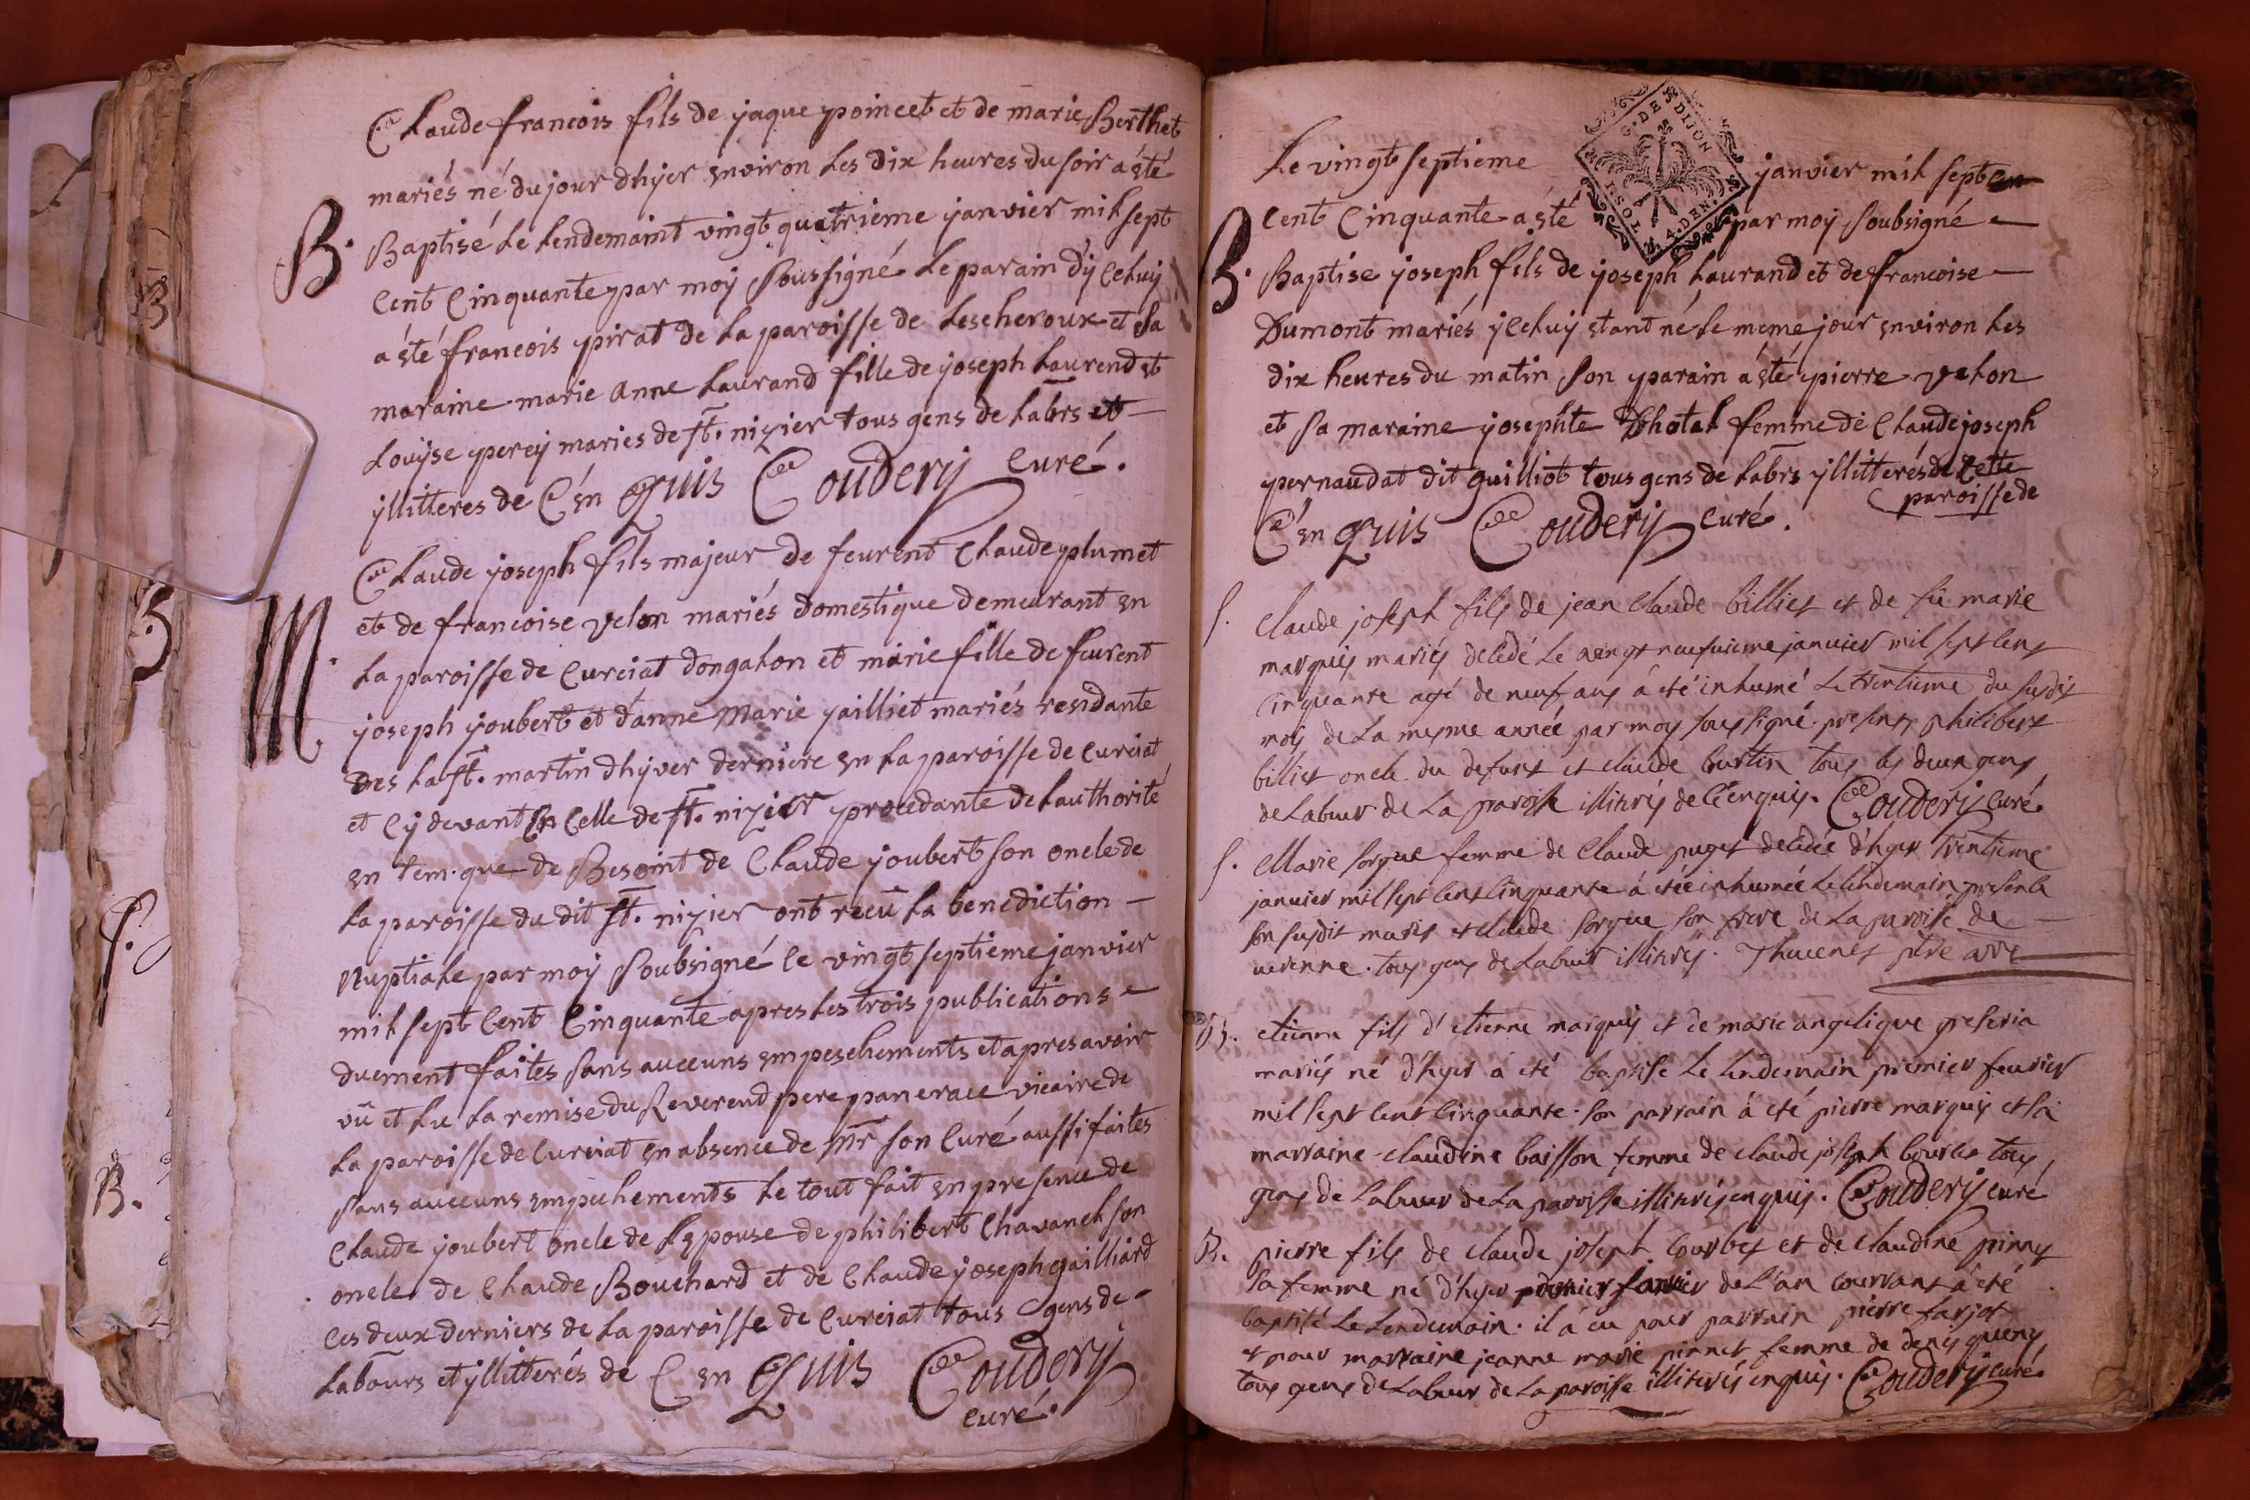 Claude francois fils de jaque poincet et de marie Berthet
mariés né du jour dhyer environ les dix heures du soir a été
B. Baptisé le lendemaint vingt quatrieme janvier mil sept
cent cinquante par moy soussigné le parain d'yceluy
a été francois pirat de la paroisse de lescheroux et sa
maraine marie anne laurand fille de joseph laurend et
Louyse perey maries de st. nizier tous gens de labrs et
yllitteres de C en quis Couderij curé.
Claude joseph fils majeur de feurent Claude plumet
et de francoise velon mariés domestique demeurant en
M. la paroisse de curciat dongalon et marie fille de feurent
joseph joubert et danne marie jailliet mariés residante
des la st. martin dhyver derniere en la paroisse de curciat
et cy devant en celle de st. nizier procedante de lauthorité
en tem. que de Besoint de Claude joubert son oncle de
la paroisse du dit st. nizier ont recu la benediction
Nuptiale par moy soubsigné le vingt septieme janvier
mil sept cent cinquante apres les trois publications
duement faites sans auccuns empeschements et apres avoir
vû et lu la remise du Reverend pere pancrace vicaire de
la paroisse de curciat en absence de mr son curé aussi faites
sans auccuns empechements le tout fait en presence de
Claude joubert oncle de lepouse de philibert Chavanel son
oncle de Claude Bouchard et de Claude joseph gailliard
ces deux derniers de la paroisse de curciat tous gens de
labours et yllitterés de C en quis Couderij
curé.
G. DE DIJON
Le vingt septieme janvier mil sept
cent cinquante a été par moy soubsigné
B. Baptise joseph fils de joseph laurand et de francoise
Dumont mariés yceluy étant né le meme jour environ les
dix heures du matin son parain a été pierre velon
et sa maraine josephte Dhotal femme de Claude joseph
pernaudat dit guilliot tous gens de labrs yllitterés de cette
paroisse de
C en quis Couderij curé.
S. Claude joseph fils de jean claude billiet et de fue marie
marquis mariés decedé le vingt neufuieme janvier mil sept cent
cinquante agé de neuf ans á eté inhumé le trentieme du susdit
mois de la mesme année par moy soussigné presents philibert
billiet oncle du defunt et claude burtin tous les deux gens
de labeur de la paroisse illiterés de C enquis. Couderij curé.
S. Marie sorgue femme de claude puget decedée d'hyer trentieme
janvier mil sept cent cinquante á etée inhumée le lendemain presents
son susdit maris et claude sorgue son frere de la paroisse de
varenne. tous gens de labeur illiterés. Thuvenet ptre
B. etienne fils d'etienne marquis et de marie angelique
mariés né d'hyer á eté baptisé le lendemain premier feuvrier
mil sept cent cinquante. son parrain á eté pierre marquis et sa
marraine claudine baisson femme de claude joseph tous
gens de labeur de la paroisse illiterés enquis. Couderij curé
B. pierre fils de claude joseph courbet et de claudine pinnet
sa femme né d'hyer de l'an courrant á eté
baptisé le lendemain. il á eu pour parrain pierre farjot
et pour marraine jeanne marie pinnet femme de denis
tous gens de labeur de la paroisse illiterés enquis. Couderij curé